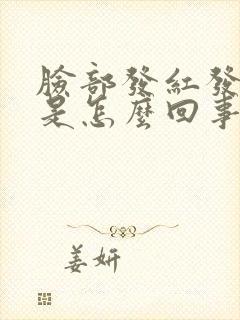 臉部發紅發
是怎麼回事
姜妍